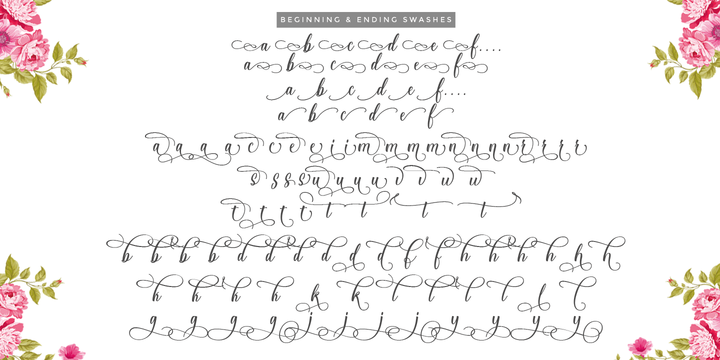 BEGINNING & ENDING SWASHES
a b c d e f....
a b c d e f
a b c d e f....
a b c d e f
a a a a c c e e i i m m m n n n n r r r r
s s s s u u u u v v w w
t t t t t t t t
b b b b d d d d d d f f h h h h h h
h h h h k k l l l l l l
g g g g g j j j j j y y y y y